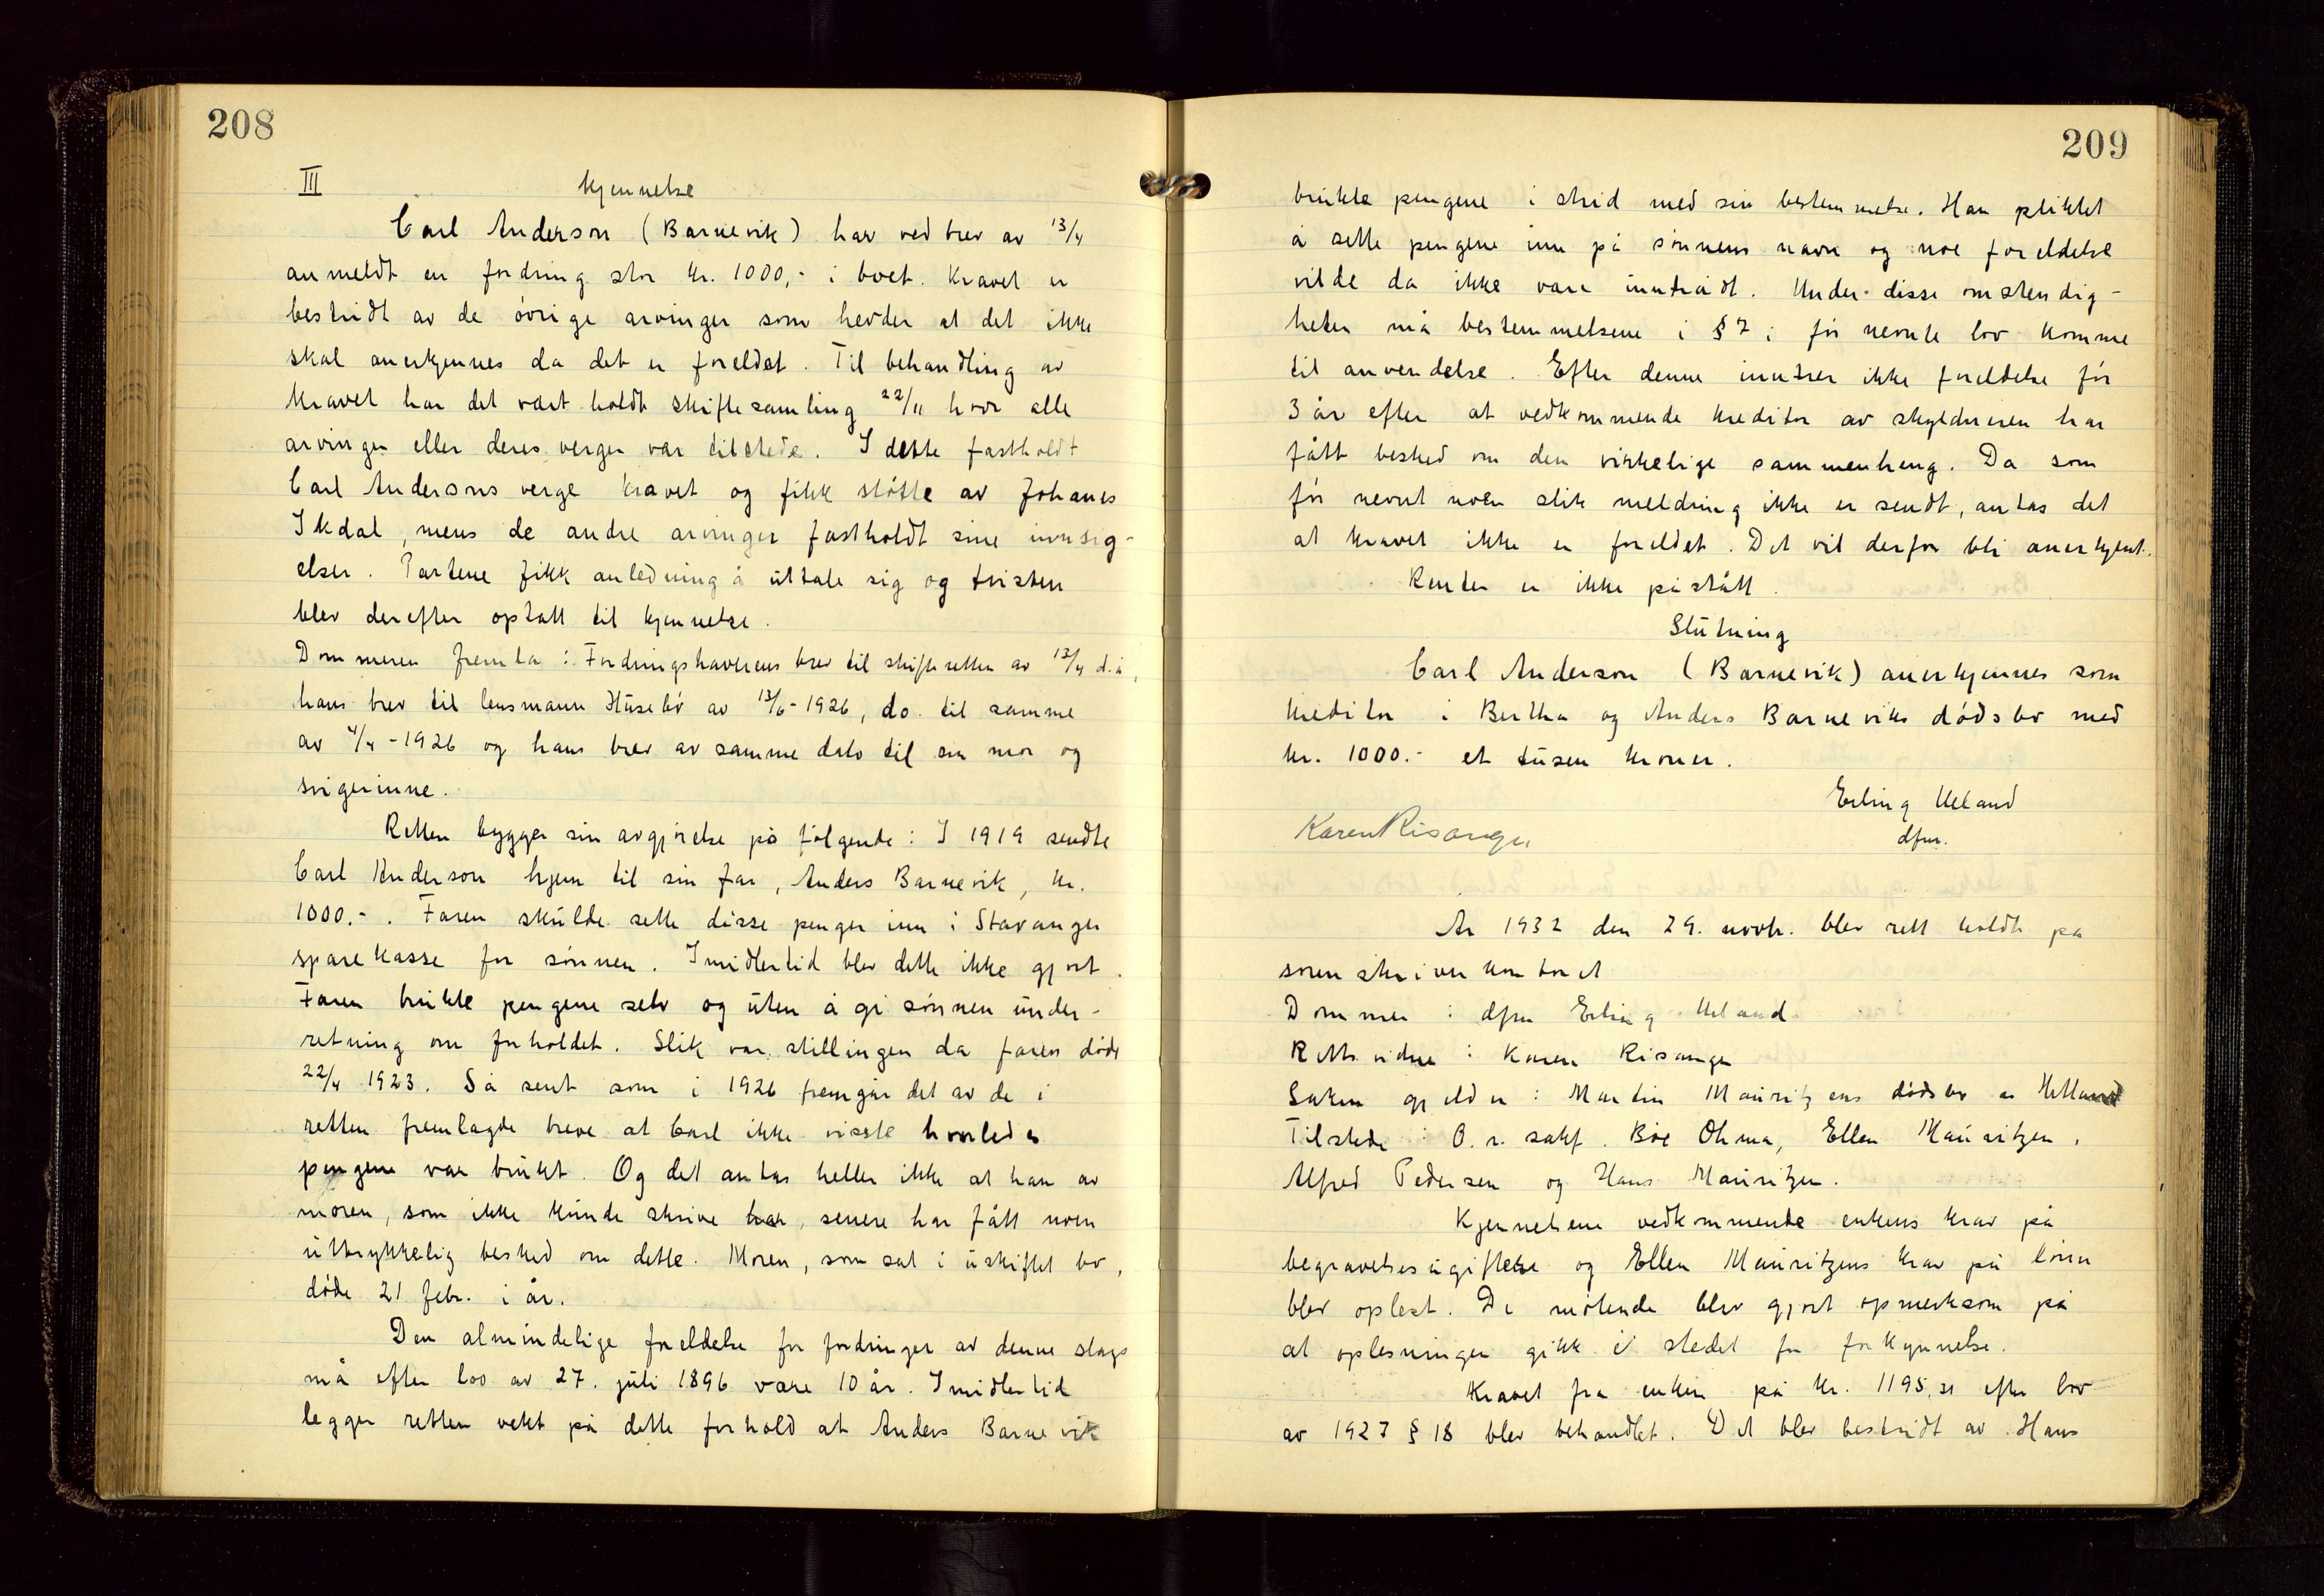 208
III kjennelse
Carl Anderson (Barnevik) har ved brev av 13/4
anmeldt en fordring stor kr. 1000,- i boet. Kravet er
bestridt av de øvrige arvinger som hevder at det ikke
skal anerkjennes da det er foreldet. Til behandling av
kravet har det vært holdt skiftesamling 22/11 hvor alle
arvinger eller deres verger var tilstede. I dette fastholdt
Carl Andersons verge kravet og fikk støtte av Johanes
Ikdal, mens de andre arvinger fastholdt sine innsig-
elser. Partene fikk anledning å uttale sig og tvisten
blev derefter optatt til kjennelse.
Dommeren fremla: Fordringshaverens brev til skifteretten av 13/4 d.å,
hans brev til lensmann Husebø av 13/6-1926, do. til samme
av 4/4-1926 og hans brev av samme dato til sin mor og
svigerinne.
Retten bygger sin avgjørelse på følgende: I 1919 sendte
Carl Anderson hjem til sin far, Anders Barnevik, kr.
1000.-. Faren skulde sette disse penger inn i Stavanger
sparekasse for sønnen. Imidlertid blev dette ikke gjort.
Faren brukte pengene selv og uten å gi sønnen under-
retning om forholdet. Slik var stillingen da faren døde
22/4 1923. Så sent som i 1926 fremgår det av de i
retten fremlagde breve at Carl ikke visste hvorledes
pengene var brukt. Og det antas heller ikke at han av
moren, som ikke kunde skrive har, senere har fått noen
uttrykkelig beskjed om dette. Moren, som sat i uskiftet bo,
døde 21 febr. i år.
Den almindelige foreldelse for fordringer av denne slags
må efter lov av 27. juli 1896 være 10 år. Imidlertid
legger retten vekt på dette forhold at Anders Barnevik
209
brukte pengene i strid med sin bestemmelse. Han pliktet
å sette pengene inn på sønnens navn og noe foreldelse
vilde da ikke være inntrådt. Under disse omstendig-
heter må bestemmelsene i § 7 i før nevnte lov komme
til anvendelse. Efter denne inntrer ikke foreldelse før
3 år efter at vedkommende kreditor av skyldneren har
fått beskjed om den virkelige sammenheng. Da som
før nevnt noen slik meldring ikke er sendt, antas det
at kravet ikke er foreldet. Det vil derfor bli anerkjent.
Renter er ikke påstått.
Slutning
Carl Anderson (Barnevik) anerkjennes som
kreditor i Bertha og Anders Barneviks dødsbo med
kr. 1000.- et tusen kroner.
Erling Ueland
dfm.
Karen Risanger
År 1932 den 29. novbr. blev rett holdt på
sorenskriverkontoret
Dommer: dfm Erling Ueland
Rettsvidne: Karen Risanger
Saken gjelder: Martin Mauritzens dødsbo
Tilstede: O.r. sakf. Bøe Ohma, Ellen Mauritzen,
Alfred Pedersen og Hans Mauritzen.
Kjennelsene vedkommende enkens krav på
begravelsesugiftene og Ellen Mauritzens krav på lønn
blev oplest. De møtende blev gjort opmerksom på
at oplesningen gikk i stedet for forkynnelse.
Kravet fra enken på kr. 1195,31 efter lov
av 1927 § 18 blev behandlet. Det blev bestridt av Hans